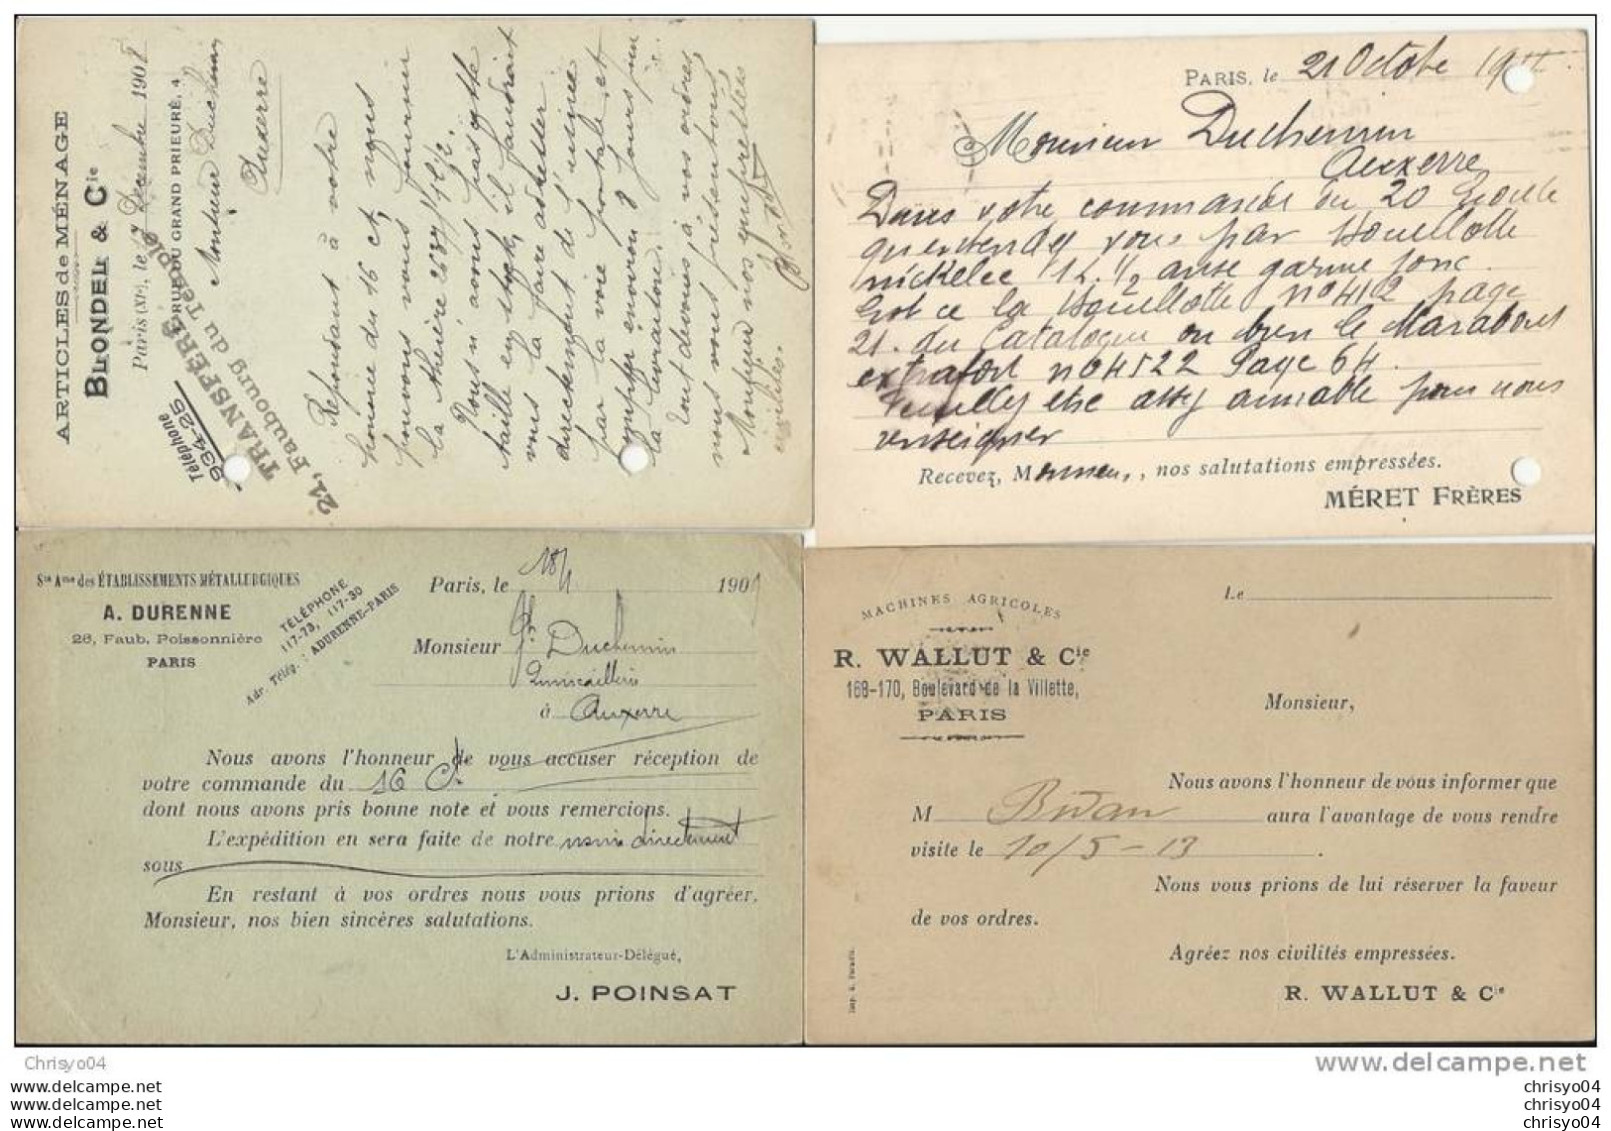 ARTICLES de MÉNAGE
BLONDEL & Cie
Paris (XIe), le 17 Décembre 1908
4, RUE DU GRAND PRIEURÉ, 4
TRANSFÉRÉ
21, Faubourg du Temple
Téléphone
934-25
Monsieur Duchemin
Auxerre
Réponsant à votre
honorée du 16 ct, nous
pouvons vous fournir
la théière
Nous n'avons pas cette
taille en stock, il faudrait
vous la faire adresser
directement de l'usine
par la voie postale, et
compter environ 8 jours pour
la livraison.
Tout dévoués à vos ordres
nous vous présentons
Monsieur nos empressées
civilités.
PARIS, le 21 Octobre 19
Monsieur Duchemin
Auxerre
Dans votre commande du 20
qu'entendez vous par Bouillotte
nickelée 12 1/2 anse garnie jonc.
Est ce la Bouillotte no 412 page
21. du Catalogue ou bien le Marabout
extrafort no 4522 Page 64.
Veuillez être assez aimable pour nous
renseigner
Recevez, Monsieur, nos salutations empressées.
MÉRET FRÈRES
Sté Ame des ÉTABLISSEMENTS MÉTALLURGIQUES
A. DURENNE
26, Faub. Poissonnière
PARIS
TÉLÉPHONE
117-73, 117-30
Adr. Télég. : ADURENNE-PARIS
Paris, le 18/1 190
Monsieur Duchemin
Quincaillerie
à Auxerre
Nous avons l'honneur de vous accuser réception de
votre commande du 16 Ct
dont nous avons pris bonne note et vous remercions.
L'expédition en sera faite de notre usine directement
sous
En restant à vos ordres nous vous prions d'agréer,
Monsieur, nos bien sincères salutations.
L'Administrateur-Délégué,
J. POINSAT
MACHINES AGRICOLES
R. WALLUT & Cie
168-170, Boulevard de la Villette,
PARIS
Le
Monsieur,
Nous avons l'honneur de vous informer que
M Bidan aura l'avantage de vous rendre
visite le 10/5-13.
Nous vous prions de lui réserver la faveur
de vos ordres.
Agréez nos civilités empressées.
R. WALLUT & Cie
Chrisyo04
www.delcampe.net
www.delcampe.net
www.delcampe.net
www.delcampe.net
chrisyo04
chrisyo04
chrisyo04